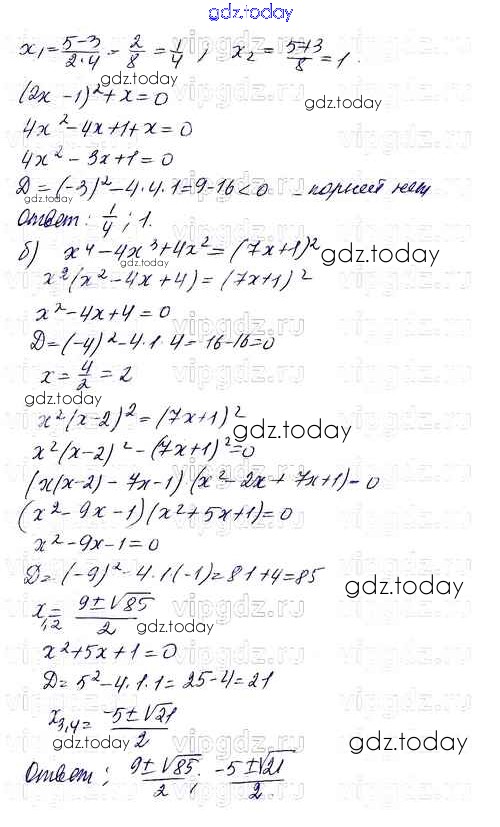 gdz.today
x₁ = (5-3)/(2·4) = 2/8 = 1/4 ; x₂ = (5+3)/8 = 1.
gdz.today
(2x-1)² + x = 0
4x² - 4x + 1 + x = 0
4x² - 3x + 1 = 0
D = (-3)² - 4·4·1 = 9 - 16 < 0 - корней нет
gdz.today
Ответ: 1/4 ; 1.
б) x⁴ - 4x³ + 4x² = (7x+1)²
gdz.today
gdz.today
x²(x² - 4x + 4) = (7x+1)²
x² - 4x + 4 = 0
D = (-4)² - 4·1·4 = 16 - 16 = 0
x = 4/2 = 2
gdz.today
x²(x-2)² = (7x+1)²
gdz.today
x²(x-2)² - (7x+1)² = 0
(x(x-2) - 7x - 1)(x² - 2x + 7x + 1) = 0
(x² - 9x - 1)(x² + 5x + 1) = 0
x² - 9x - 1 = 0
D = (-9)² - 4·1(-1) = 81 + 4 = 85
gdz.today
x₁,₂ = (9±√85)/2
gdz.today
x² + 5x + 1 = 0
D = 5² - 4·1·1 = 25 - 4 = 21
x₃,₄ = (-5±√21)/2
gdz.today
gdz.today
Ответ: (9±√85)/2 ; (-5±√21)/2.
vipgdz.ru